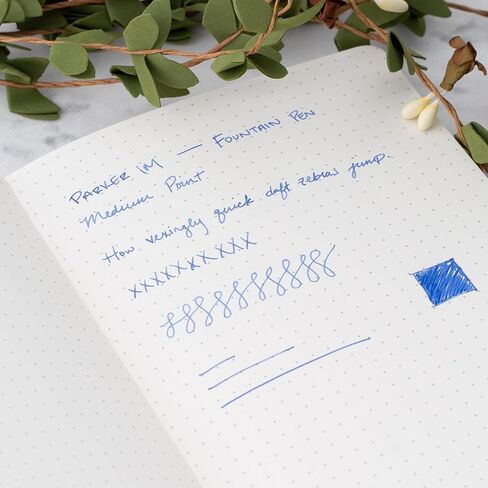 PARKER IM — FOUNTAIN PEN
Medium Point
How vexingly quick daft zebras jump.
xxxxxxxxxx